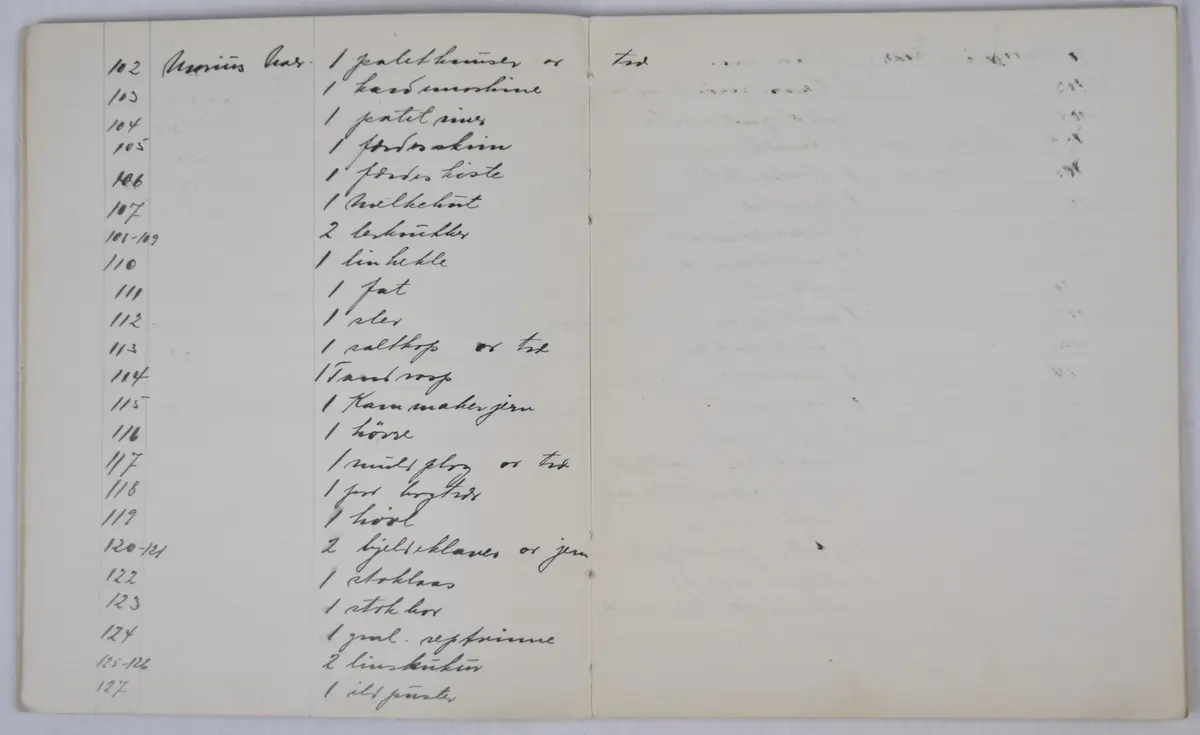 102 Marius Nær. 1 paletknuser av træ
103 1 kardemaskine
104 1 potet river
105 1 færdeskrin
106 1 færdeskiste
107 1 melkebut
108-109 2 lerkrukker
110 1 linhekle
111 1 fat
112 1 slev
113 1 saltkop av træ
114 1 Tand rasp
115 1 Kammakerjern
116 1 hövre
117 1 muldplog av træ
118 1 par
119 1 hövl
120-121 2 bjeldeklaver av jern
122 1 stoklaas
123 1 stokbor
124 1 gml.
125-126 2
127 1 ildpuster